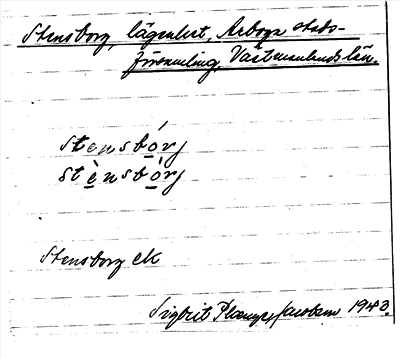 Stensborg, lägenhet, Arboga stads-
församling, Västmanlands län.
stensbórj
stènsbòrj
Stensborg ek
Sigbrit Plænge Jacobson 1943.